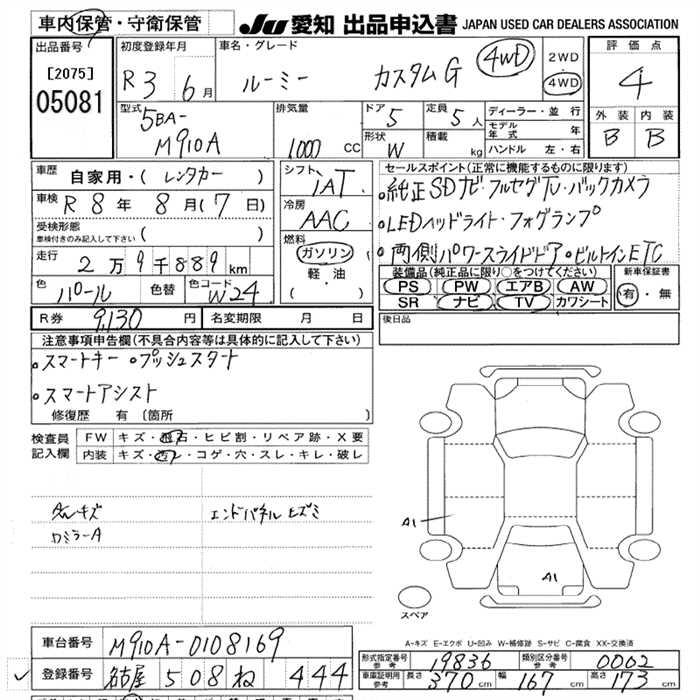 車内保管・守衛保管
JU 愛知 出品申込書 JAPAN USED CAR DEALERS ASSOCIATION
出品番号 [2075] 05081
初度登録年月 R3 6月
車名・グレード ルーミー カスタムG 4WD
2WD 4WD
評価点 4
外装 B 内装 B
型式 5BA-M910A
排気量 1000 CC
ドア 5 定員 5人
形状 W 積載 kg
ディーラー・並行
モデル年式 年
ハンドル 左・右
車歴 自家用・(レンタカー)
車検 R8年8月(7日)
受検形態 車検付きのみ記入して下さい ( )
走行 2万9千889km
色 パール 色替 色コード W24
シフト IAT
冷房 AAC
燃料 ガソリン 軽・油 ( )
セールスポイント(正常に機能するものに限ります)
・純正SDナビ・フルセグTV・バックカメラ
・LEDヘッドライト・フォグランプ
・両側パワースライドドア・ビルトインETC
装備品(純正品に限り○をつけてください)
PS PW エアB AW
SR ナビ TV カワシート
新車保証書 有・無
R券 9,130円 名変期限 月 日
後日品
注意事項申告欄(不具合内容等は具体的に記入して下さい)
・スマートキー ・プッシュスタート
・スマートアシスト
修復歴 有(箇所 )
検査員記入欄
FW キズ・飛石・ヒビ割・リペア跡・X要
内装 キズ・汚レ・コゲ・穴・スレ・キレ・破レ
ダッシュキズ エンドパネルヒズミ
ロミラーA
A1
A1
スペア
A-キズ E-エクボ U-凹み W-補修跡 S-サビ C-腐食 XX-交換済
車台番号 M910A-0108169
登録番号 名古屋 508 ね 444
形式指定番号 参考 19836 類別区分番号 参考 0002
車庫証明用 参考 長さ 370cm 幅 167cm 高さ 173cm